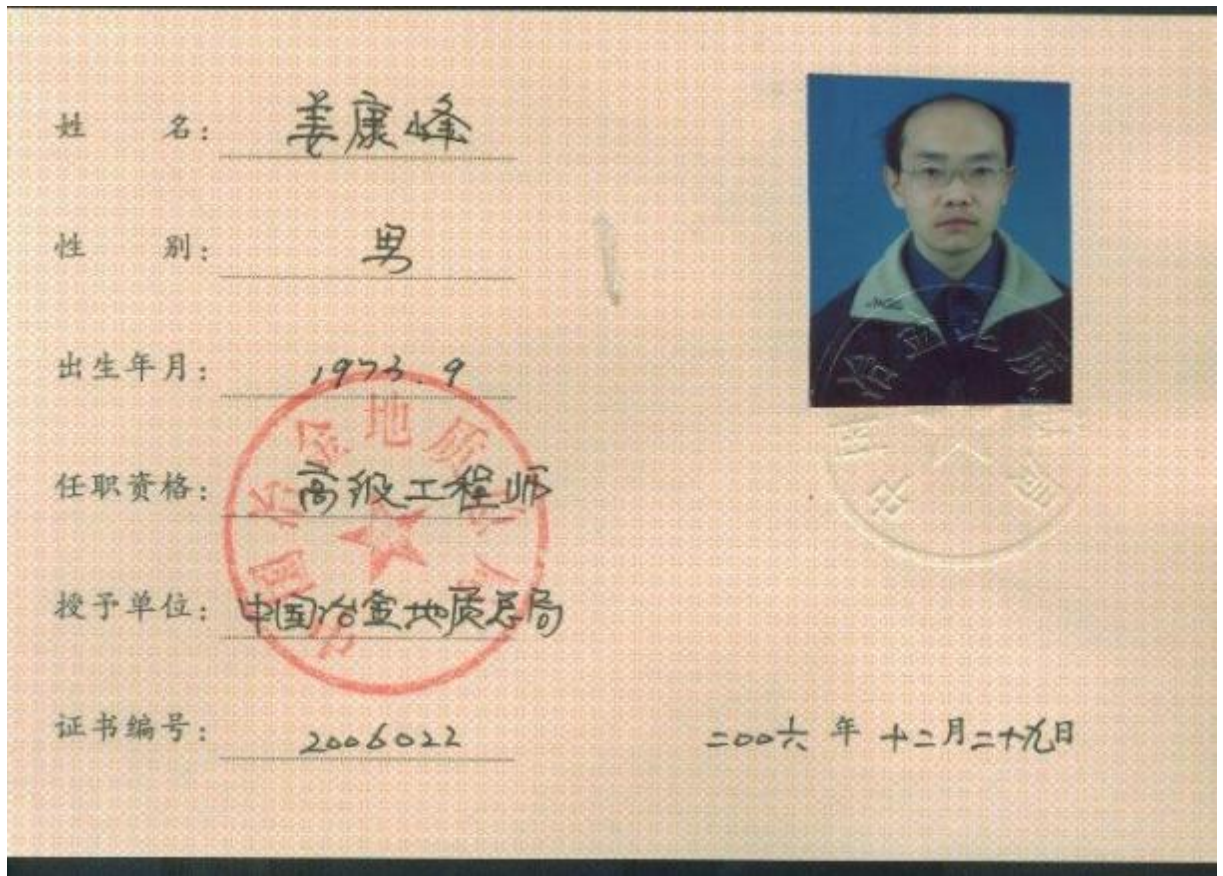 姓 名: 姜康峰
性 别: 男
出生年月: 1973.9
任职资格: 高级工程师
授予单位: 中国冶金地质总局
证书编号: 2006022
二〇〇六 年 十二月二十九日
中国冶金地质总局